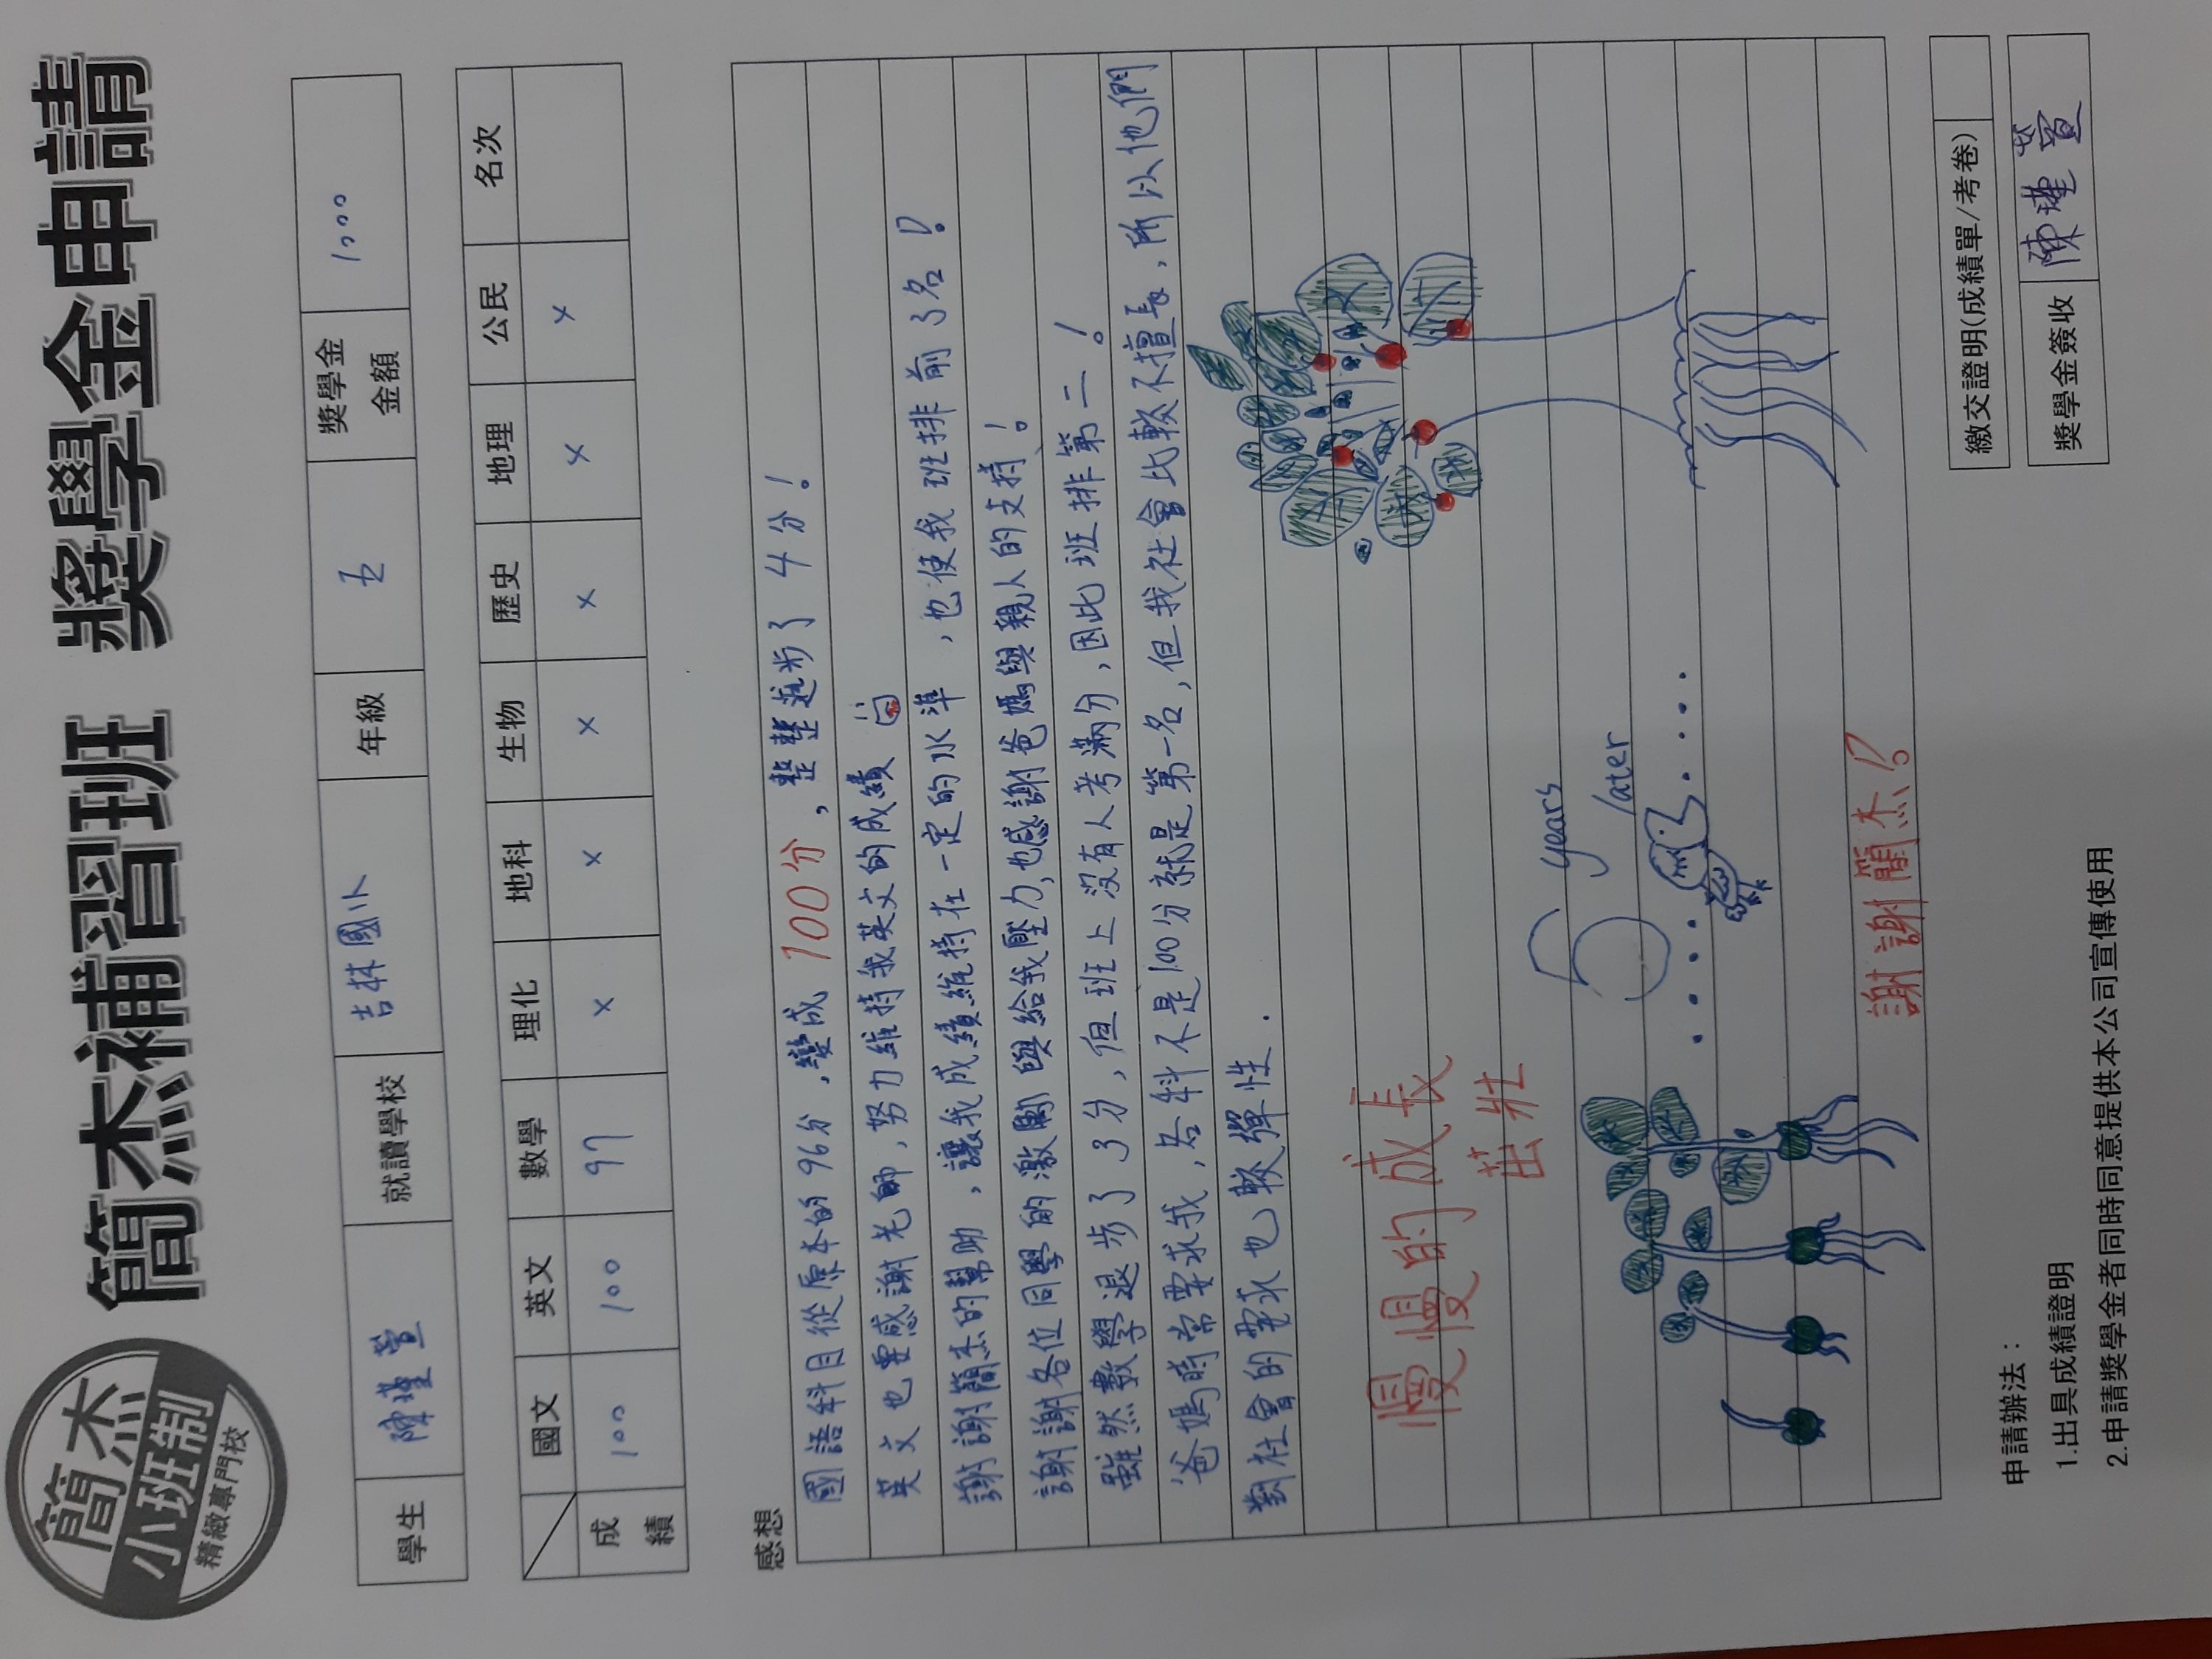 簡杰
小班制
精緻專門校
簡杰補習班 獎學金申請
學生 陳瑾萱 就讀學校 吉林國小 年級 五 獎學金金額 1000
國文 英文 數學 理化 地科 生物 歷史 地理 公民 名次
成績 100 100 97 × × × × × ×
感想
國語科目從原本的96分,變成100分,整整進步了4分!
英文也要感謝老師,努力維持我英文的成績
謝謝簡杰的幫助,讓我成績維持在一定的水準,也使我班排前3名!
謝謝各位同學的激勵與給我壓力,也感謝爸媽與親人的支持!
雖然數學退步了3分,但班上沒有人考滿分,因此班排第二!
爸媽時常要求我,各科不是100分就是第一名,但我社會比較不擅長,所以他們
對社會的要求也較彈性.
慢慢的成長
茁壯
5 years
later
謝謝簡杰!
申請辦法:
1.出具成績證明
2.申請獎學金者同時同意提供本公司宣傳使用
繳交證明(成績單/考卷)
獎學金簽收 陳瑾萱